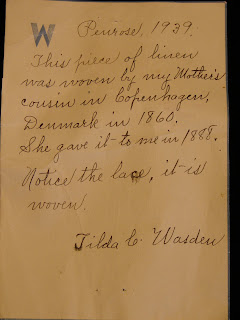 W
Penrose, 1939.
This piece of linen
was woven by my Mother's
cousin in Copenhagen,
Denmark in 1860.
She gave it to me in 1888.
Notice the lace, it is
woven.
Tilda C. Wasden